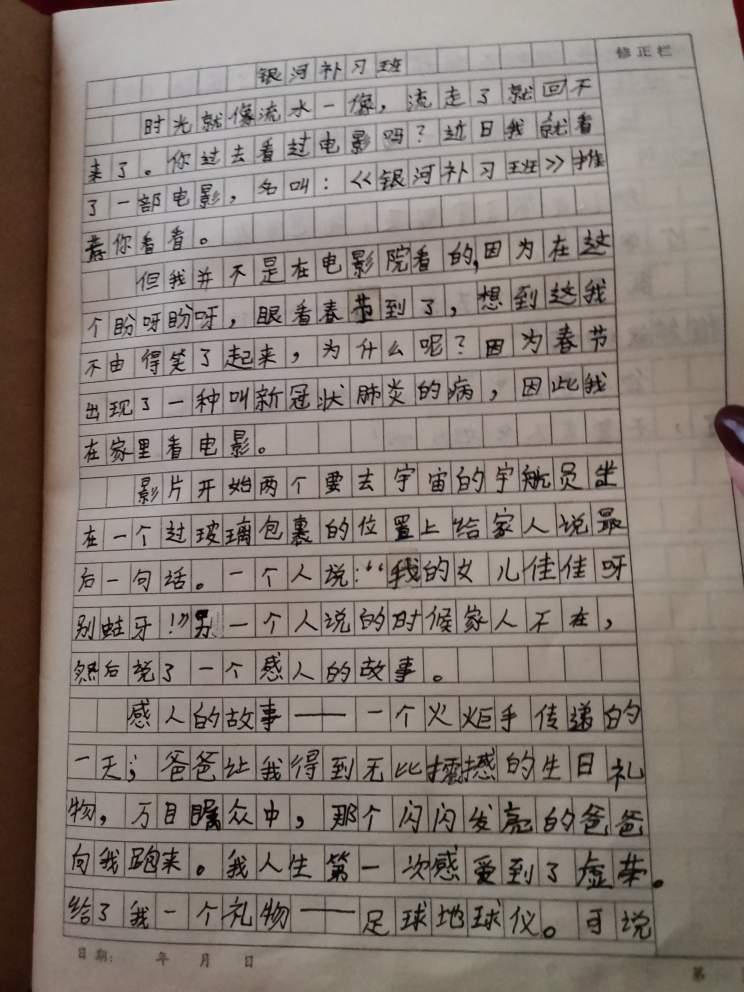 修正栏
银河补习班
时光就像流水一像，流走了就回不
来了。你过去看过电影吗？近日我就看
了一部电影，名叫：《银河补习班》推
荐你看看。
但我并不是在电影院看的,因为在这
个盼呀盼呀，眼看春节到了，想到这我
不由得笑了起来，为什么呢？因为春节
出现了一种叫新冠状肺炎的病，因此我
在家里看电影。
影片开始两个要去宇宙的宇航员坐
在一个过玻璃包裹的位置上给家人说最
后一句话。一个人说：“我的女儿佳佳呀
别蛀牙！”另一个人说的时候家人不在，
然后说了一个感人的故事。
感人的故事——一个火炬手传递的
一天；爸爸让我得到无比的生日礼
物，万目瞩众中，那个闪闪发亮的爸爸
向我跑来。我人生第一次感受到了虚荣。
给了我一个礼物——足球地球仪。可说
日期： 年 月 日
第